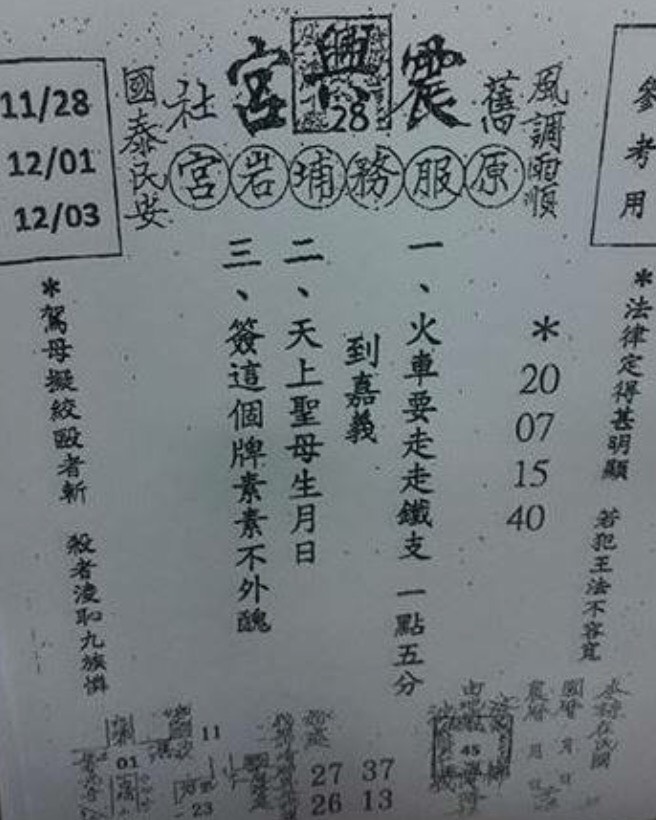 參考用
風調雨順
舊
震興宮
28
社
國泰民安
原服務埔岩宮
11/28
12/01
12/03
*法律定得甚明顯 若犯王法不容寬
*
20
07
15
40
一、火車要走走鐵支 一點五分
到嘉義
二、天上聖母生月日
三、簽這個牌素素不外醜
*駕母擬絞毆者斬 殺者淩恥九族憐
國曆 月 日
農曆 月 日
45
27 37
26 13
11
01
23